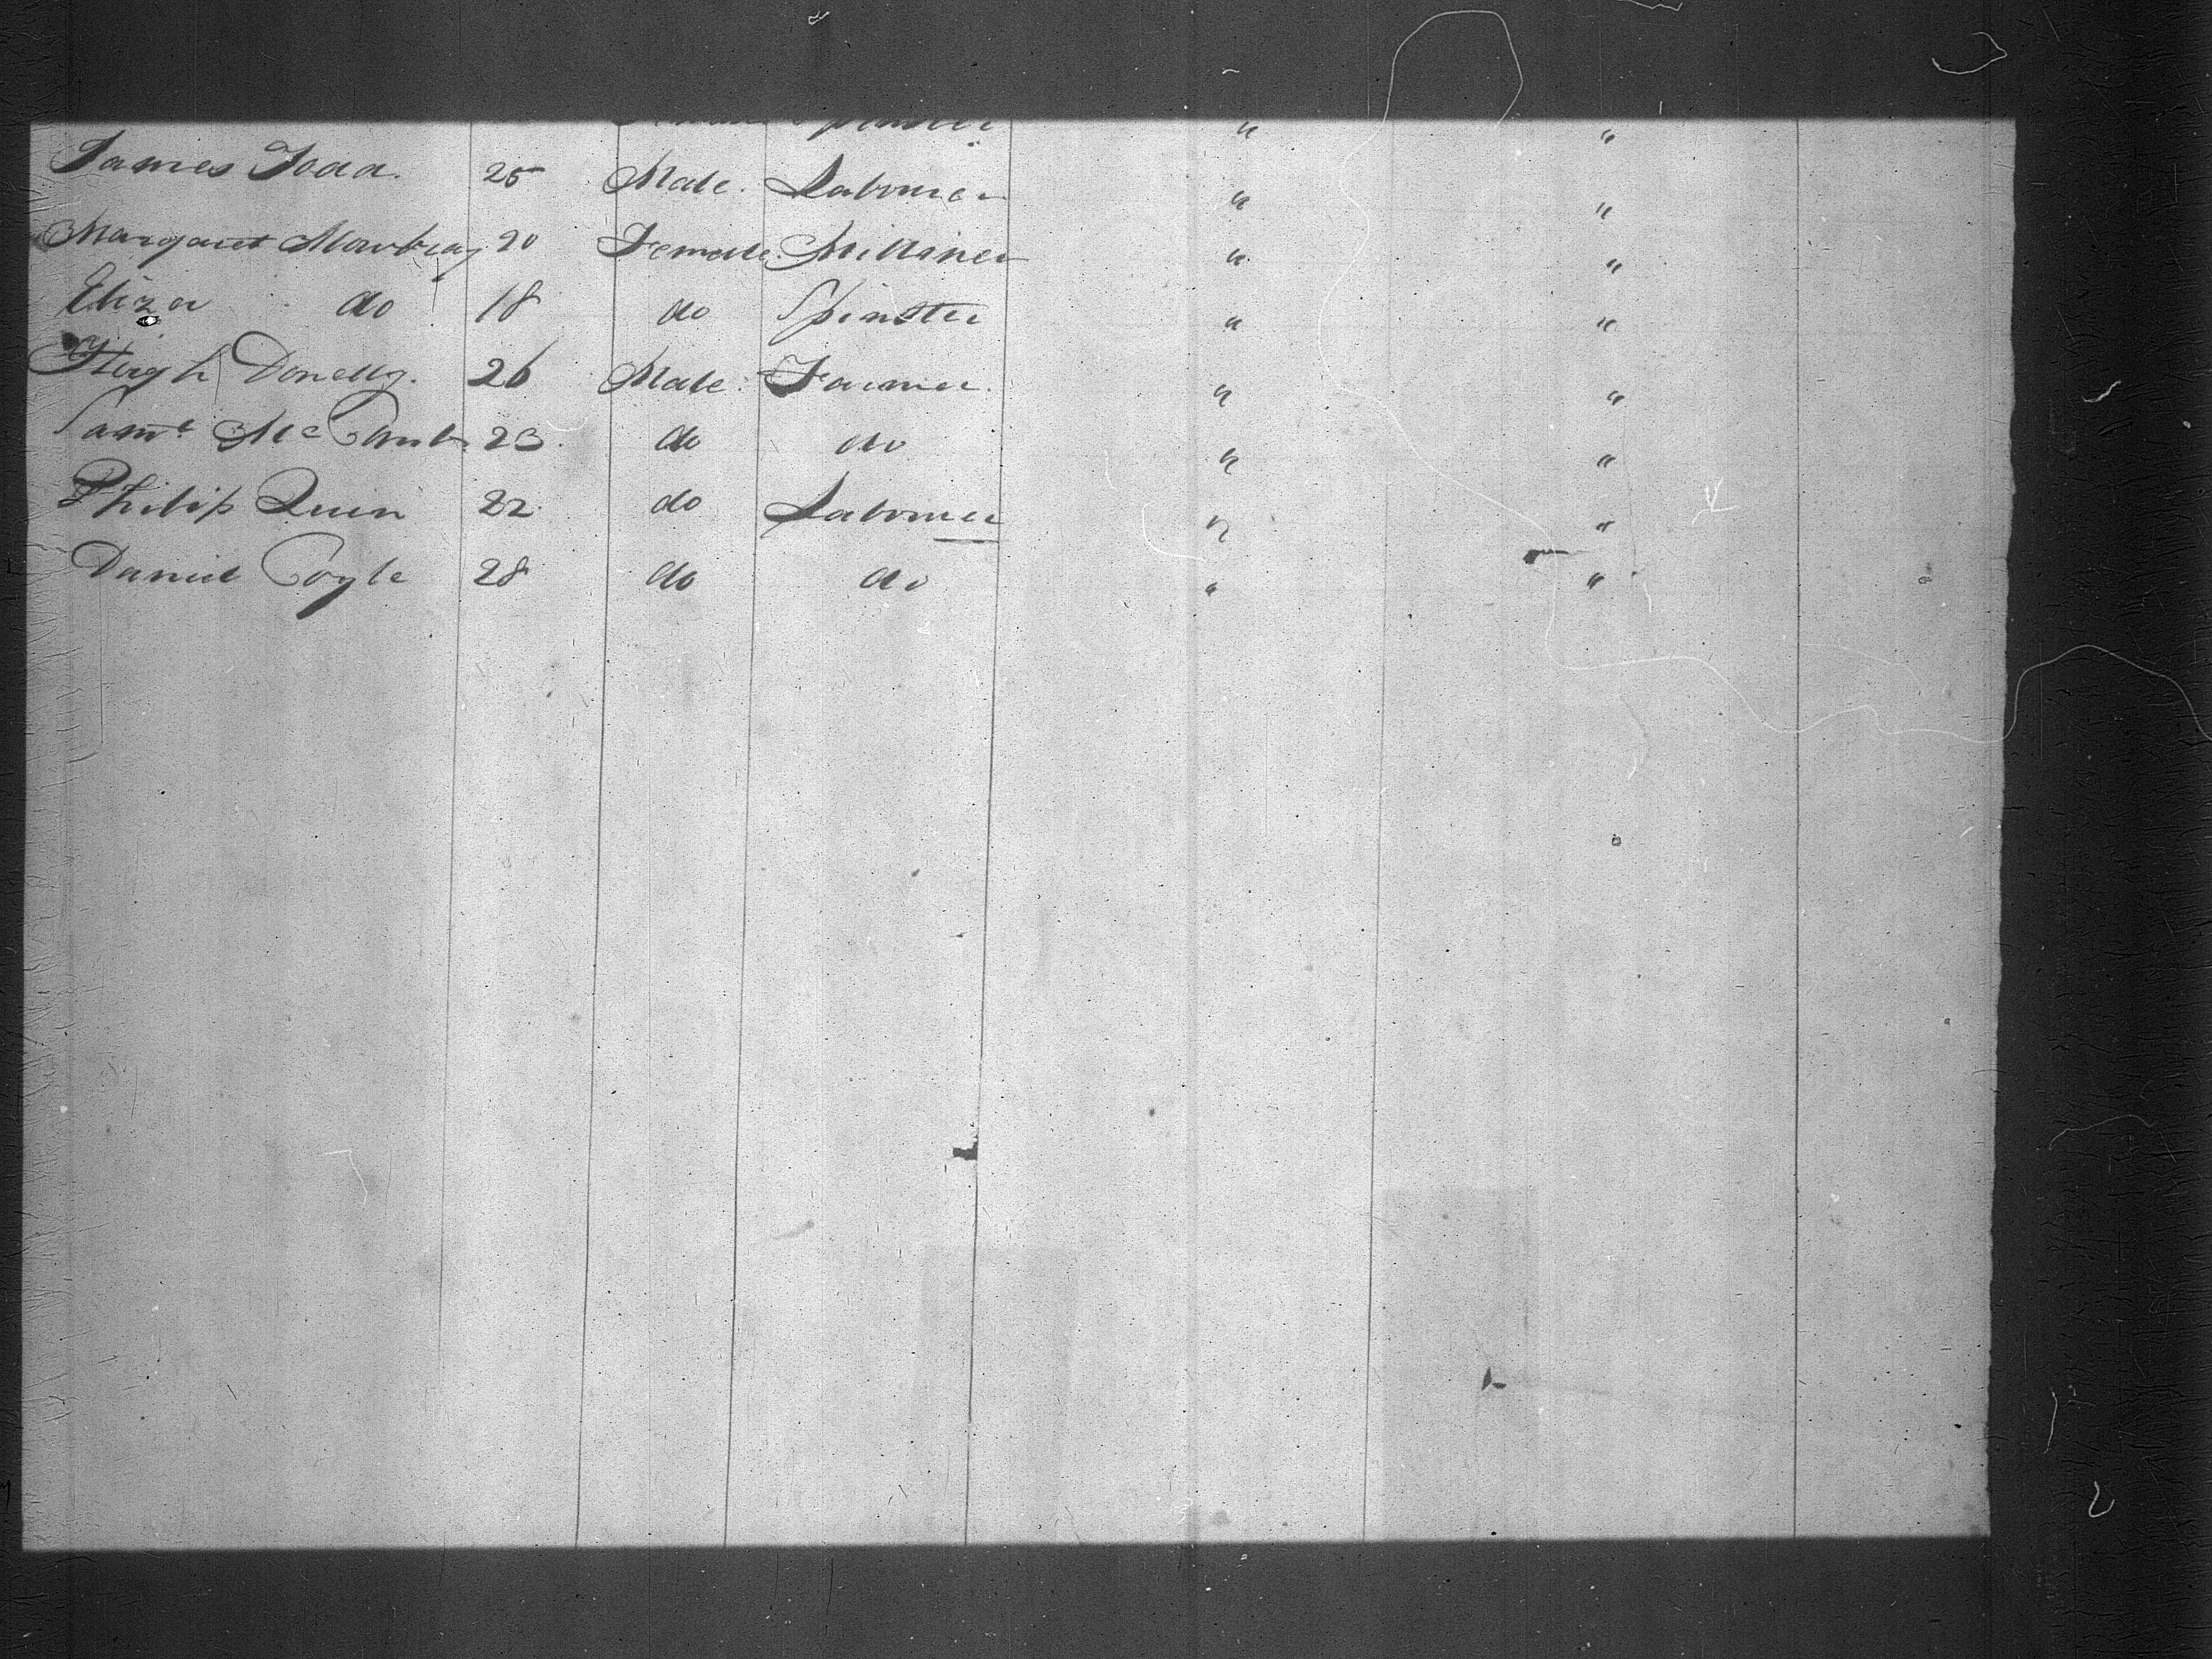 Spinster " "
James Todd. 25 Male. Labourer " "
Margaret Mowbray 20 Female. Milliner " "
Eliza do 18 do Spinster " "
Hugh Donelly. 26 Male. Farmer. " "
Saml. Mc 23. do do " "
Philip Quin 22. do Labourer " "
Daniel Coyle 28 do do " "